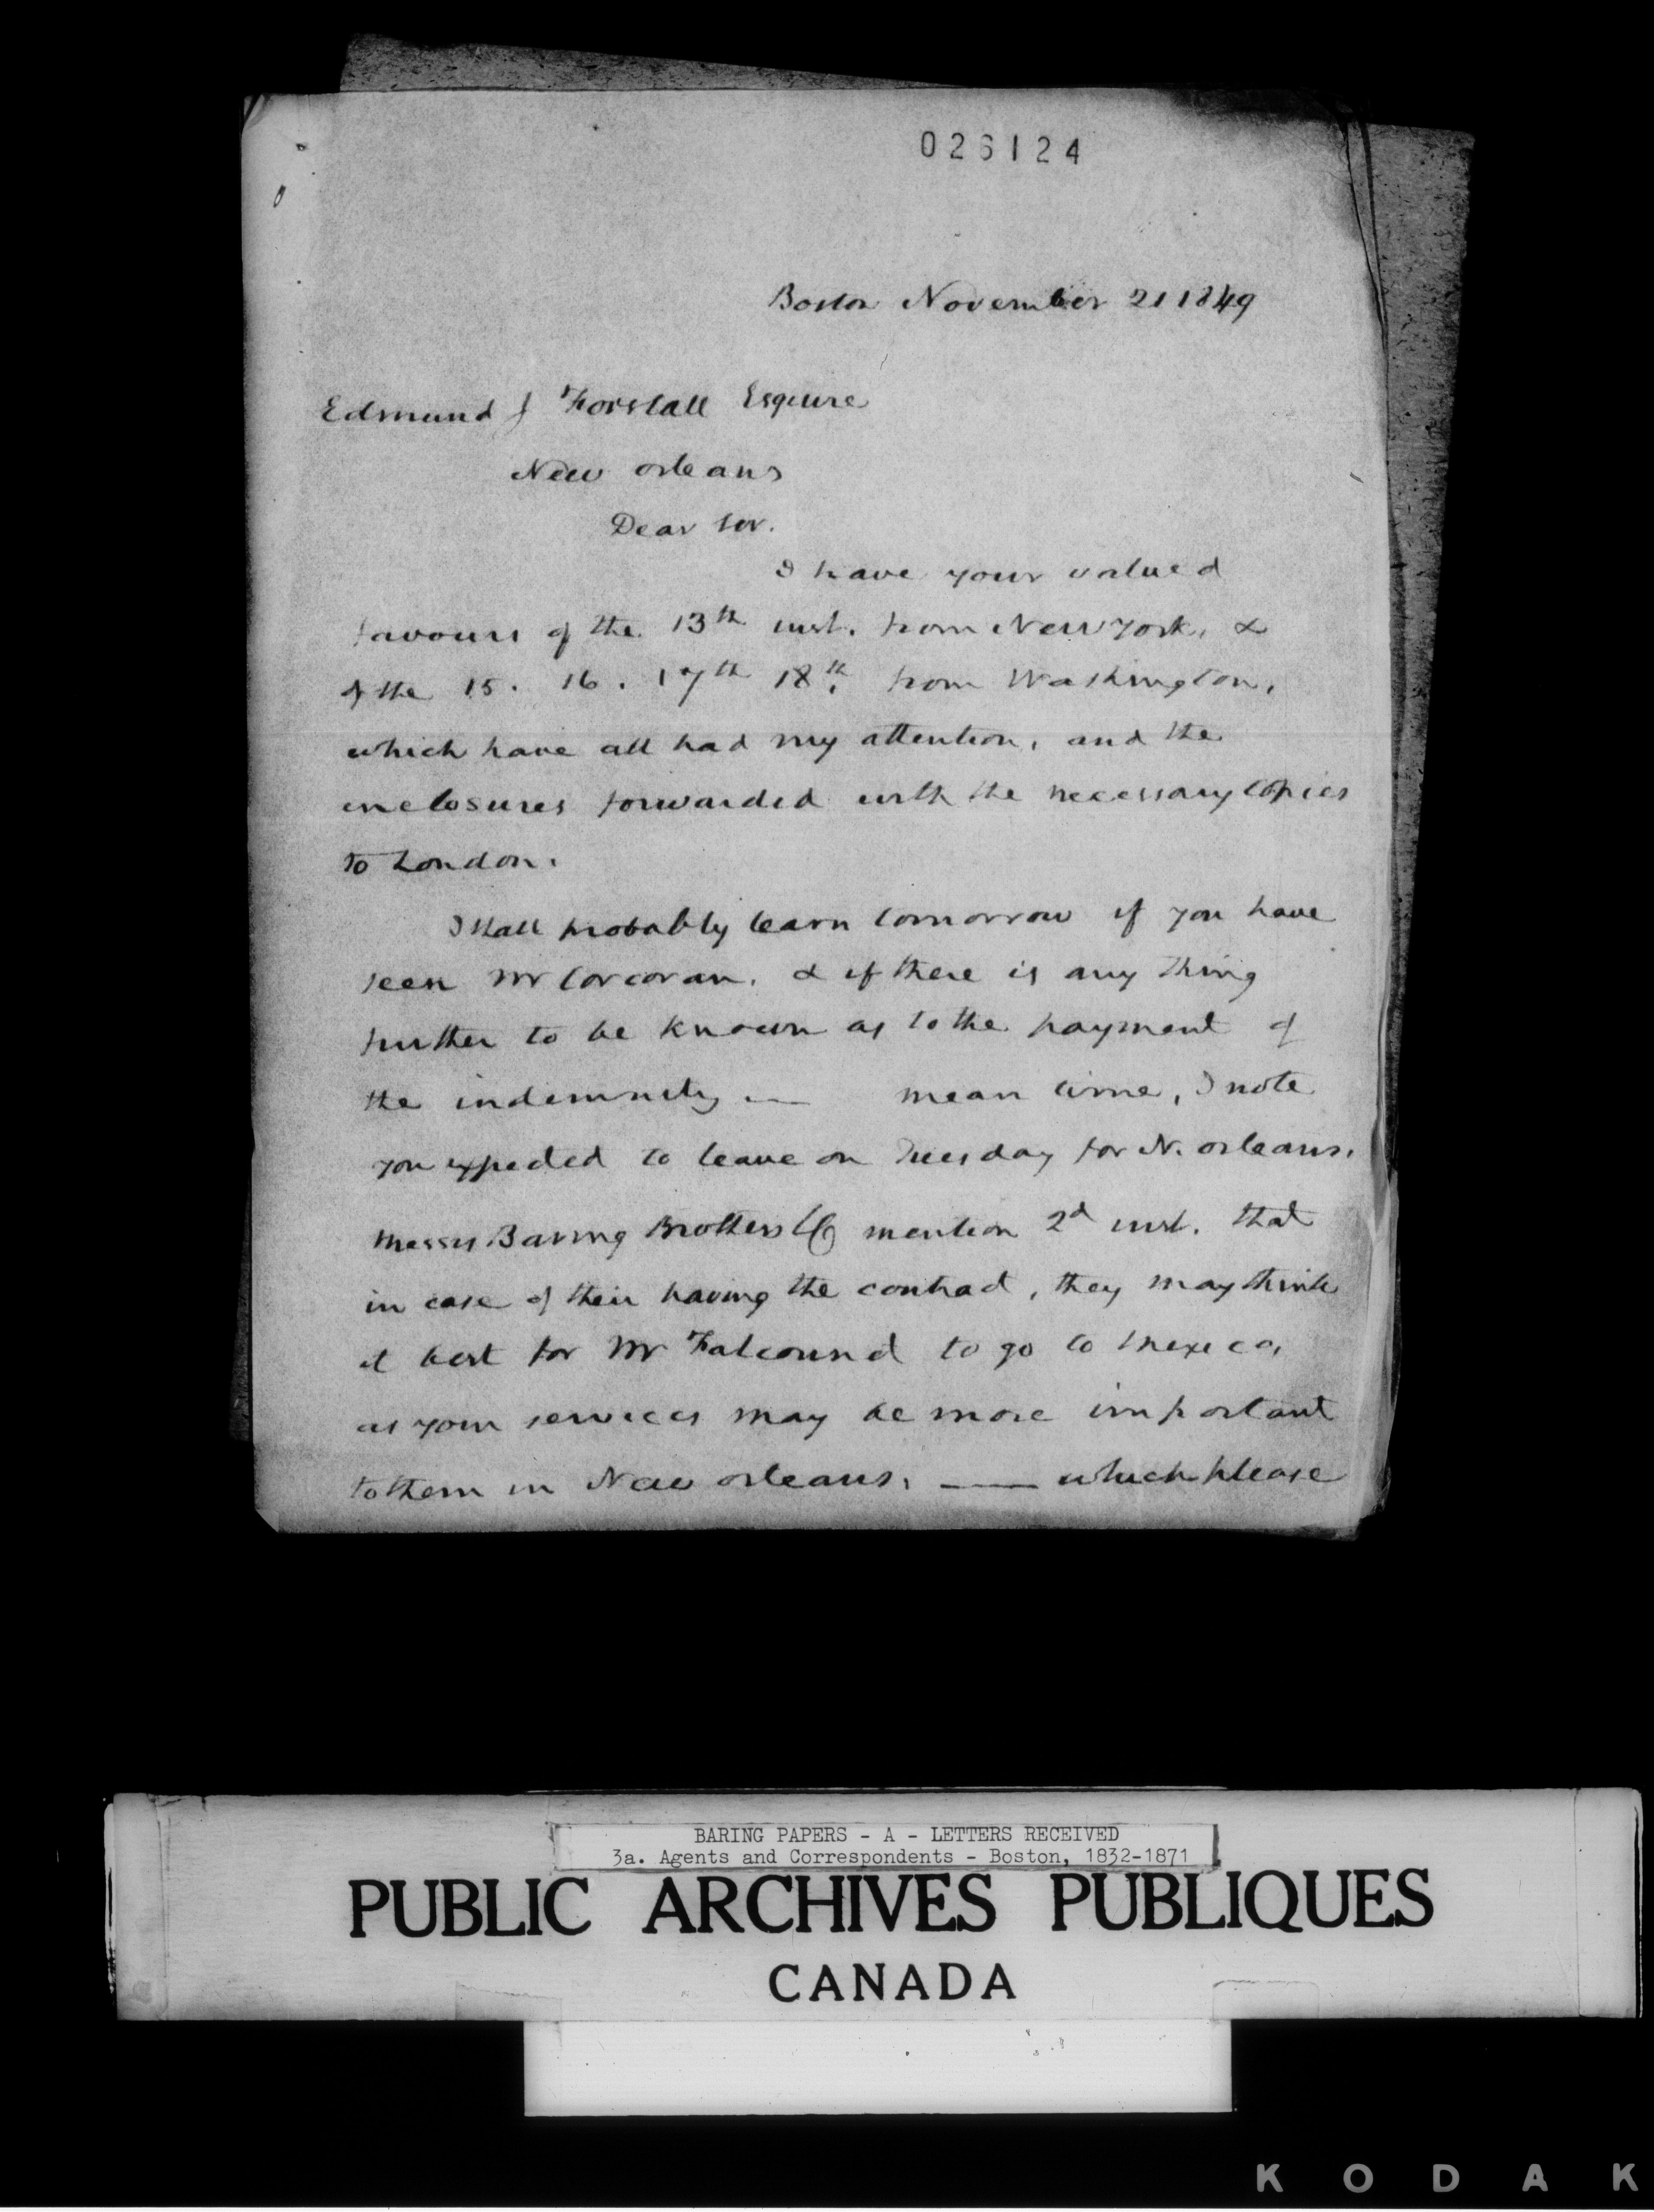 026124
Boston November 21 1849
Edmund J Forstall Esquire
New orleans
Dear Sir.
I have your valued
favours of the 13th inst. from New York, &
of the 15. 16. 17th 18th. from Washington,
which have all had my attention, and the
enclosures forwarded with the necessary Copies
to London.
I shall probably learn tomorrow if you have
seen Mr Corcoran, & if there is any thing
further to be known as to the payment of
the indemnity — mean time, I note
you expected to leave on Tuesday for N. orleans.
Messrs Baring Brothers & Co mention 2d inst. that
in case of their having the contract, they may think
it best for Mr Falconnet to go to Mexico,
as your services may be more important
to them in New orleans. — which please
BARING PAPERS - A - LETTERS RECEIVED
3a. Agents and Correspondents - Boston, 1832-1871
PUBLIC ARCHIVES PUBLIQUES
CANADA
KODAK